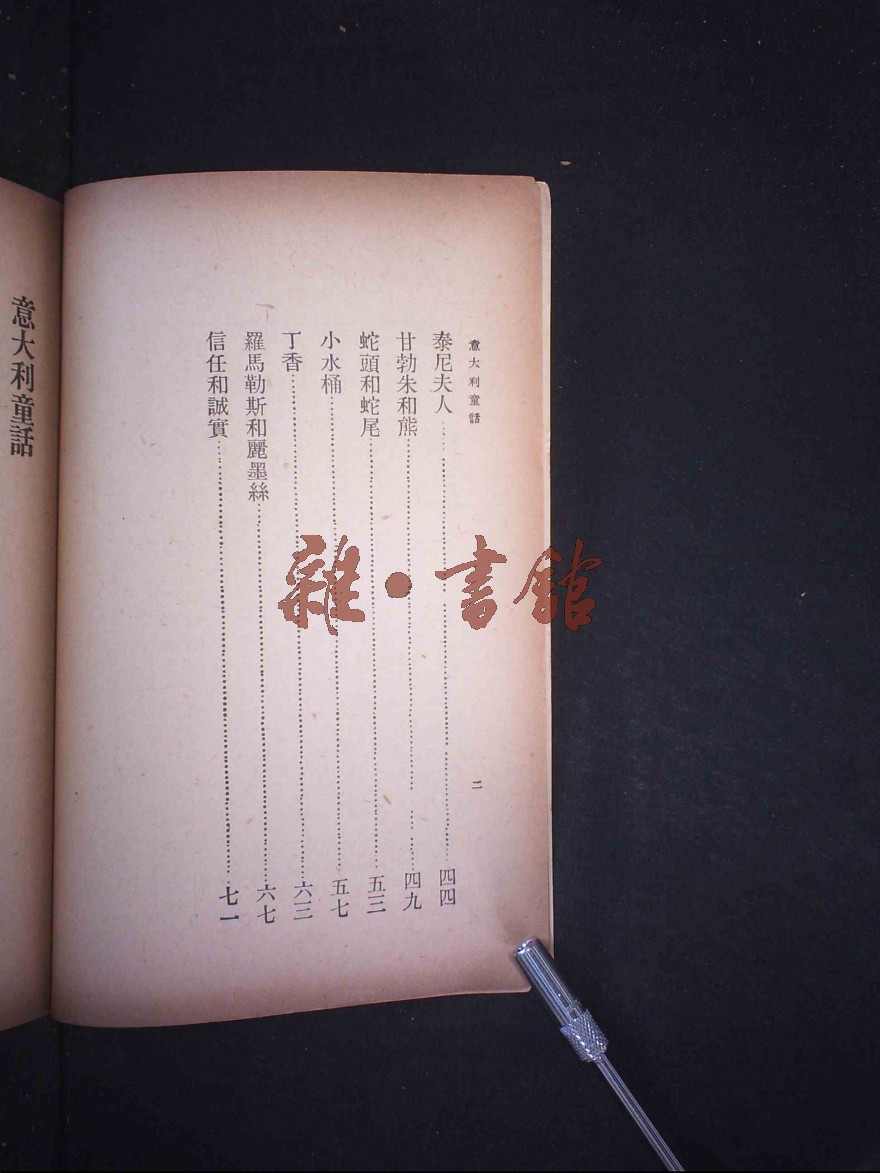 意大利童話
二
泰尼夫人 四四
甘勃朱和熊 四九
蛇頭和蛇尾 五三
小水桶 五七
丁香 六三
羅馬勒斯和麗墨絲 六七
信任和誠實 七一
意大利童話
雜·書館